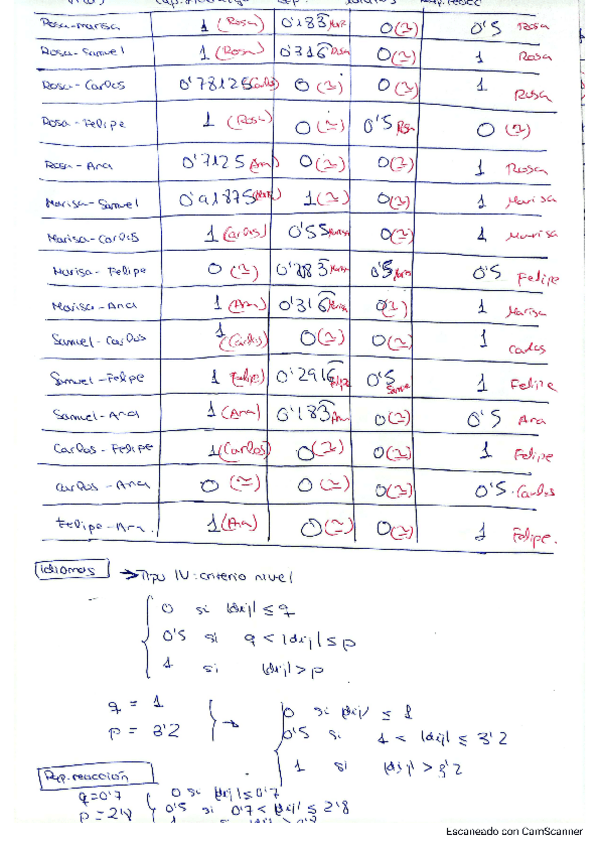 Rosa-Marisa 1 (Rosa) 0'183 0(≃) 0'5 Rosa
Rosa-Samuel 1 (Rosa) 0'316 Rosa 0(≃) 1 Rosa
Rosa-Carlos 0'78125 (Carlos) 0 (≃) 0 (≃) 1 Rosa
Rosa-Felipe 1 (Rosa) 0 (≃) 0'5 Rosa 0 (≃)
Rosa-Ana 0'7125 (Ana) 0(≃) 0(≃) 1 Rosa
Marisa-Samuel 0'91875 1(≃) 0(≃) 1 Marisa
Marisa-Carlos 1 (Carlos) 0'55 Marisa 0(≃) 1 Marisa
Marisa-Felipe 0 (≃) 0'5 0'5 Felipe
Marisa-Ana 1 (Ana) 0'316 0(≃) 1 Marisa
Samuel-Carlos 1 (Carlos) 0(≃) 0(≃) 1 Carlos
Samuel-Felipe 1 (Felipe) 0'2916 Felipe 0'5 Samuel 1 Felipe
Samuel-Ana 1(Ana) 0'183 Ana 0(≃) 0'5 Ana
Carlos-Felipe 1(Carlos) 0(≃) 0(≃) 1 Felipe
Carlos-Ana 0 (≃) 0 (≃) 0(≃) 0'5 Carlos
Felipe-Ana. 1(Ana) 0(≃) 0(≃) 1 Felipe.
Idiomas → Tipo IV: criterio nivel
0 si |dij| ≤ q
0'5 si q < |dij| ≤ p
1 si |dij| > p
q = 1
p = 3'2
→
0 si |dij| ≤ 1
0'5 si 1 < |dij| ≤ 3'2
1 si |dij| > 3'2
Rap.reacción
q=0'7 0 si |dij| ≤ 0'7
p=2'8 0'5 si 0'7 < |dij| ≤ 2'8
Escaneado con CamScanner